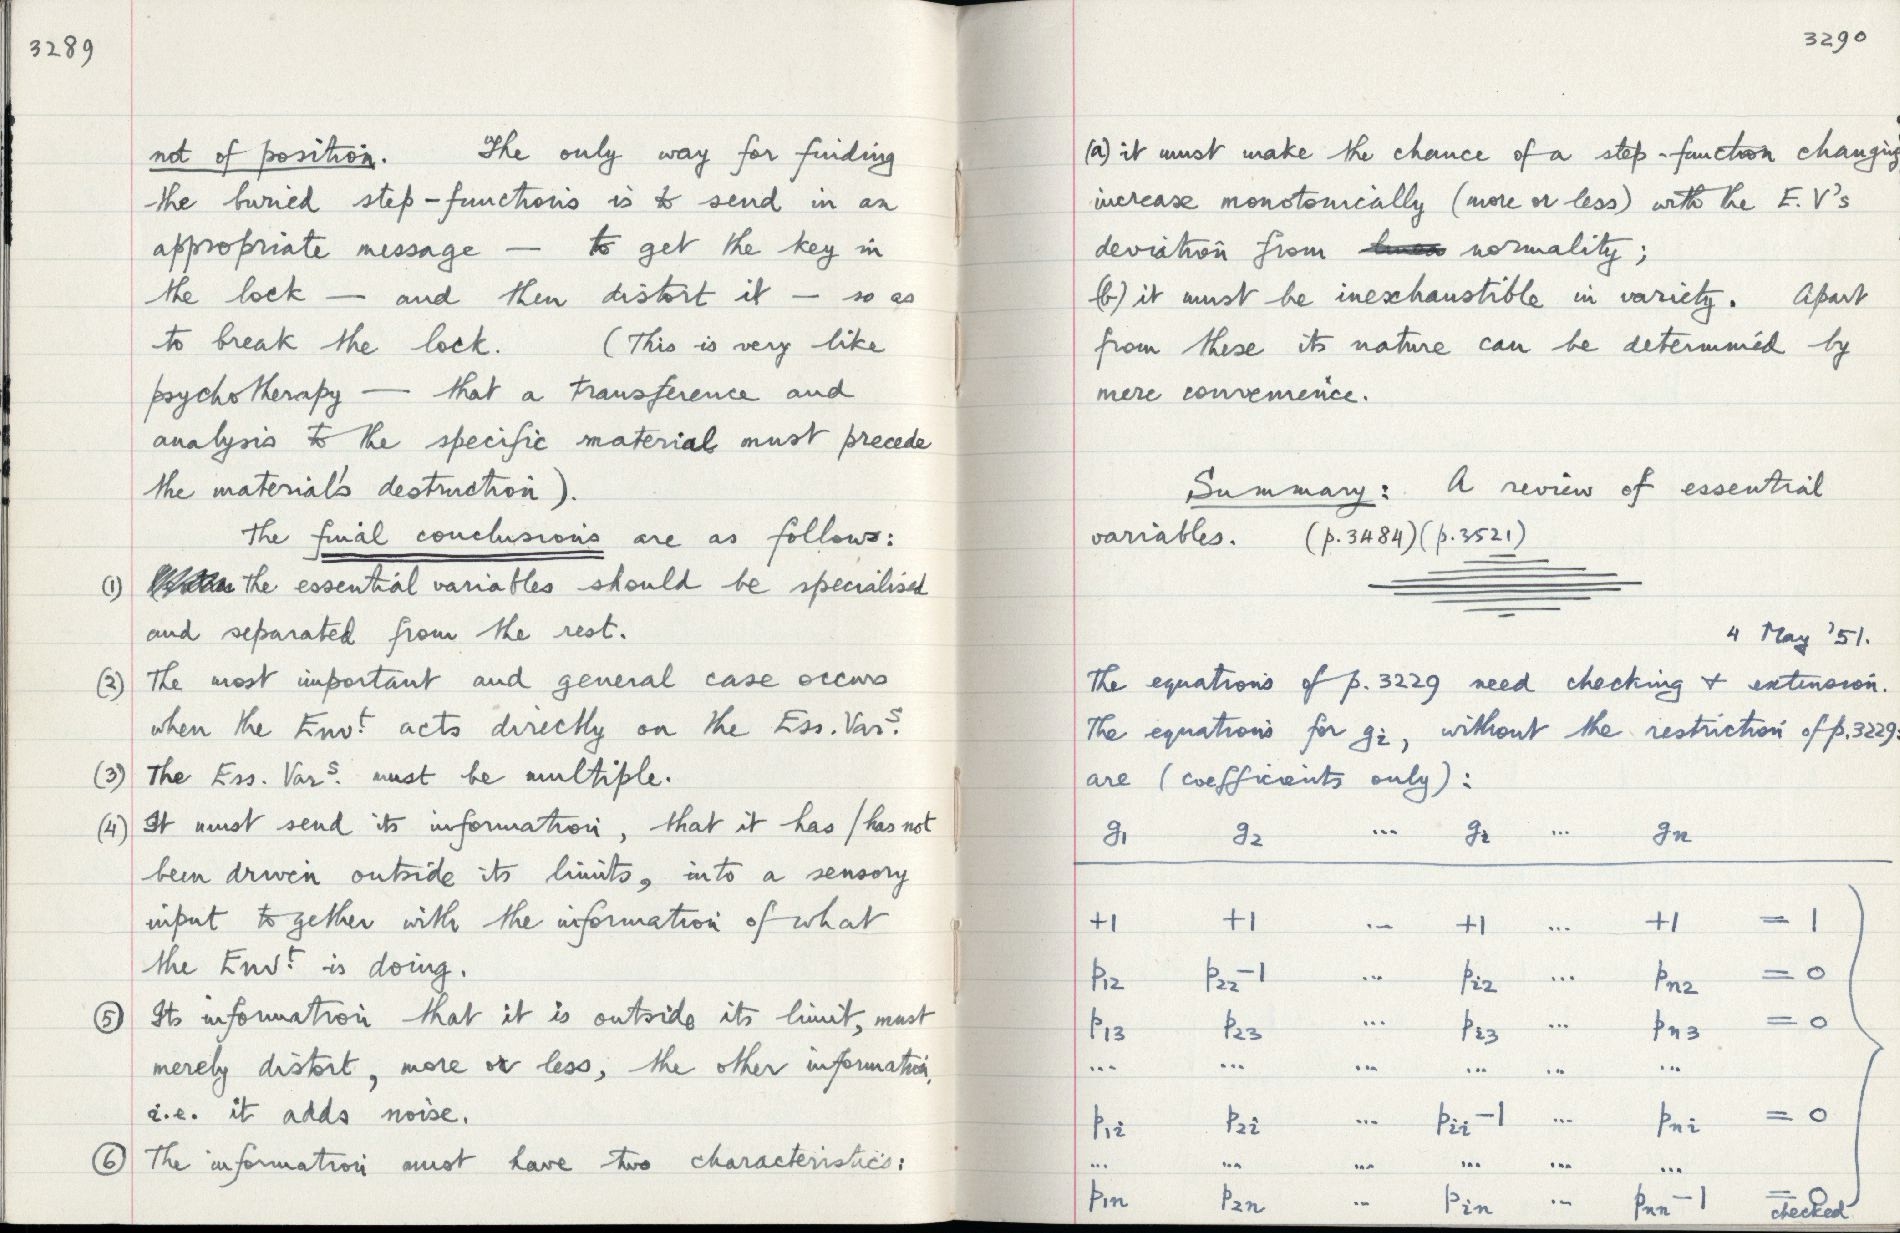 3289
not of position. The only way for finding
the buried step-functions is to send in an
appropriate message — to get the key in
the lock — and then distort it — so as
to break the lock. (This is very like
psychotherapy — that a transference and
analysis to the specific material must precede
the material's destruction).
The final conclusions are as follows:
(1) The essential variables should be specialised
and separated from the rest.
(2) The most important and general case occurs
when the Envt. acts directly on the Ess. Vars.
(3) The Ess. Vars. must be multiple.
(4) It must send its information, that it has/has not
been driven outside its limits, into a sensory
input together with the information of what
the Envt. is doing.
(5) Its information that it is outside its limit, must
merely distort, more or less, the other information,
i.e. it adds noise.
(6) The information must have two characteristics:
3290
(a) it must make the chance of a step-function changing
increase monotonically (more or less) with the E.V's
deviation from normality;
(b) it must be inexhaustible in variety. Apart
from these its nature can be determined by
mere convenience.
Summary: A review of essential
variables. (p.3484)(p.3521)
4 May '51.
The equations of p.3229 need checking & extension.
The equations for gi, without the restriction of p.3229:
are (coefficients only):
g1 g2 ... gi ... gn
+1 +1 ... +1 ... +1 = 1
p12 p22-1 ... pi2 ... pn2 = 0
p13 p23 ... pi3 ... pn3 = 0
... ... ... ... ... ...
p1i p2i ... pii-1 ... pni = 0
... ... ... ... ... ...
p1n p2n ... pin ... pnn-1 = 0
checked